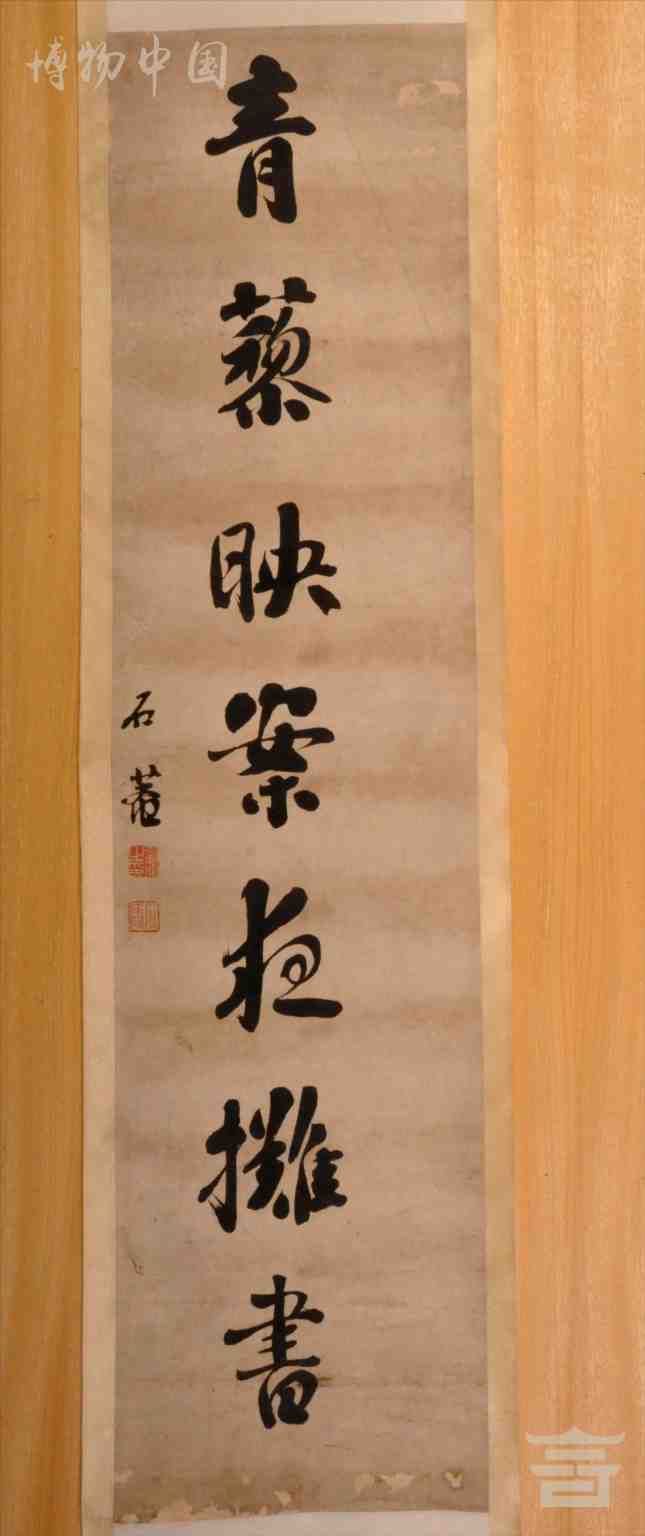 博物中国
青藜映案夜攤書
石菴